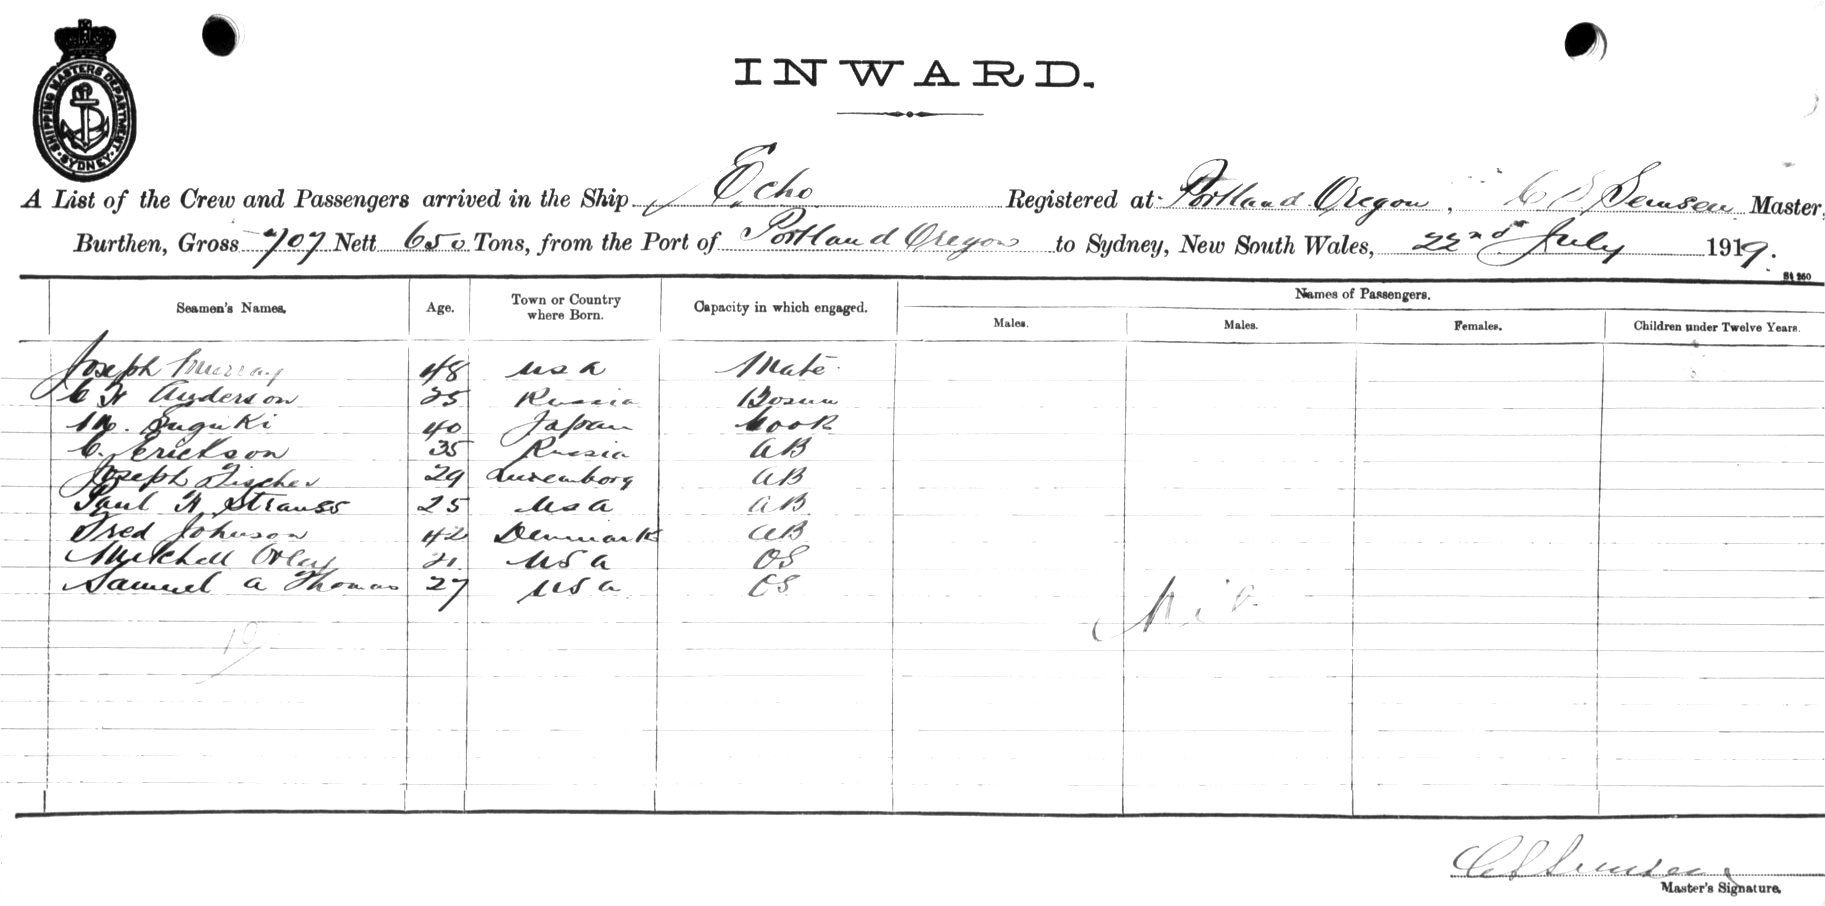 SHIPPING MASTERS DEPARTMENT
SYDNEY
INWARD.
A List of the Crew and Passengers arrived in the Ship Echo Registered at Portland Oregon, C S Master,
Burthen, Gross 707 Nett 650 Tons, from the Port of Portland Oregon to Sydney, New South Wales, 22nd July 1919.
St 260
Seamen's Names. Age. Town or Country where Born. Capacity in which engaged. Names of Passengers.
Males. Males. Females. Children under Twelve Years.
Joseph Murray 48 USA Mate
C H Anderson 25 Russia Bosun
M. Suguki 40 Japan Cook
C. Erickson 35 Russia AB
Joseph Fischer 29 Luxemborg AB
Paul H Strauss 25 USA AB
Fred Johnson 42 Denmark AB
Mitchell 21 USA OS
Samuel A Thomas 27 USA OS
Nil
10
C S
Master's Signature.